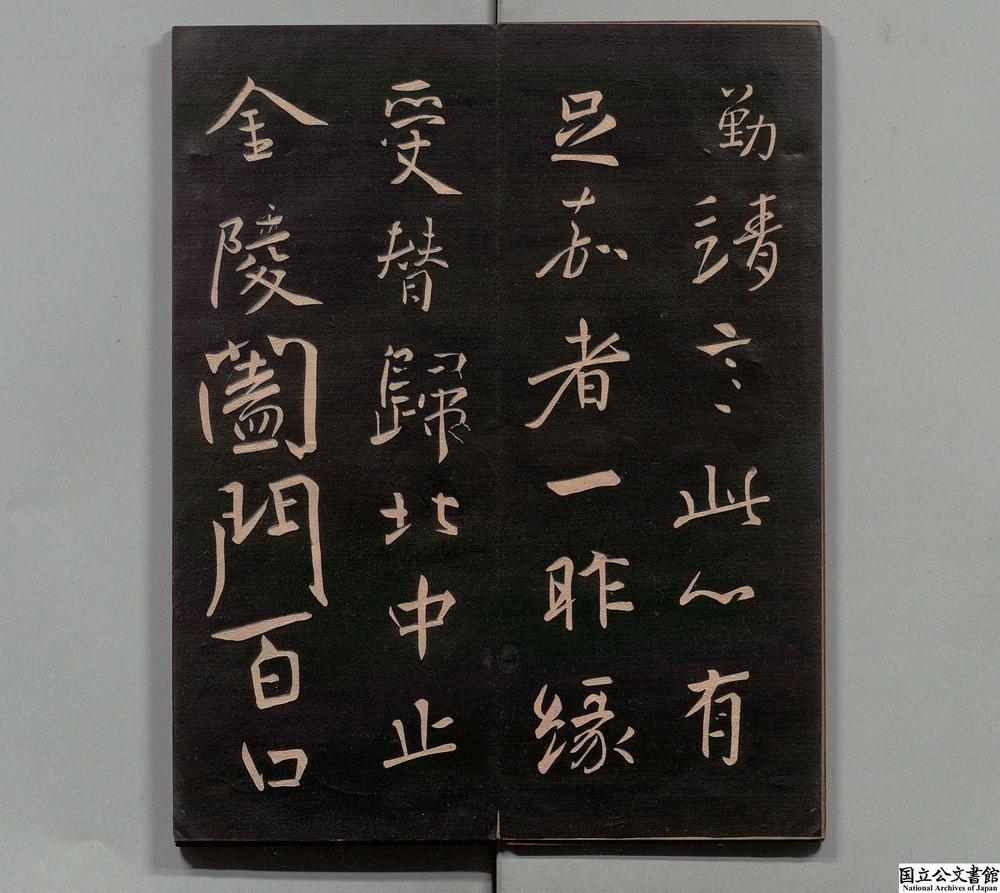 勤請之此心有
足嘉者一昨緣
受替歸北中止
金陵闔門百口
国立公文書館
National Archives of Japan